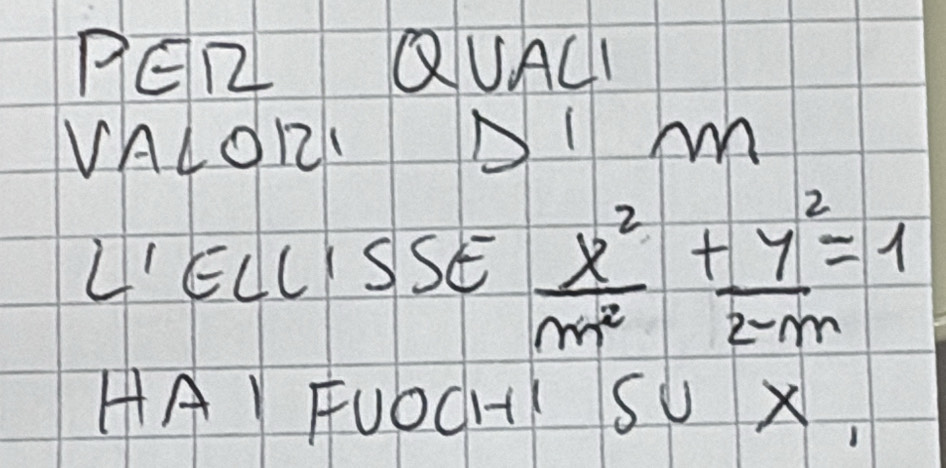 PER QUALI
VALORI DI m
L'ELLISSE x²/m² + y²/2-m = 1
HA I FUOCHI SU X.